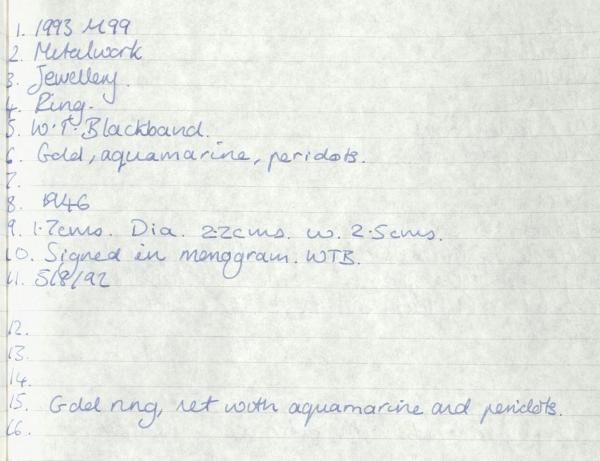 1. 1993 M99
2. Metalwork
3. Jewellery.
4. Ring.
5. W.T. Blackband.
6. Gold, aquamarine, peridots.
7.
8. 1946
9. 1.7cms. Dia. 2.2cms. w. 2.5cms.
10. Signed in monogram. WTB.
11. 5/8/92
12.
13.
14.
15. Gold ring, set with aquamarine and peridots.
16.